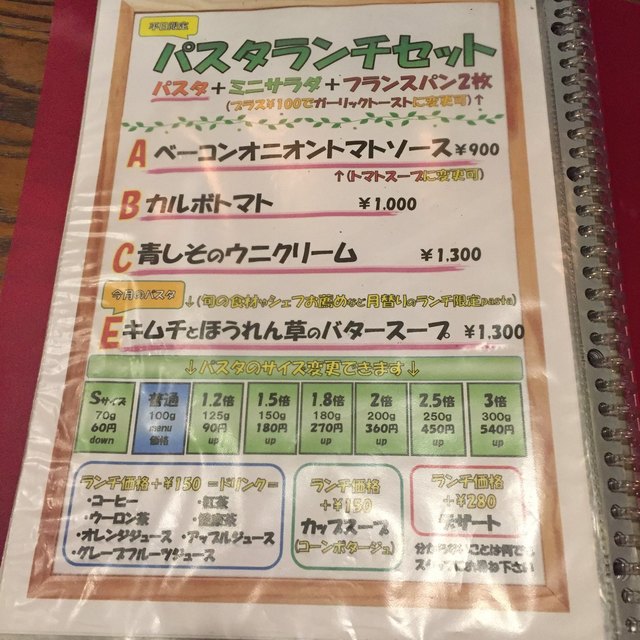 平日限定
パスタランチセット
パスタ+ミニサラダ+フランスパン2枚
(プラス¥100でガーリックトーストに変更可)↑
A ベーコンオニオントマトソース ¥900
↑(トマトスープに変更可)
B カルボトマト ¥1.000
C 青しそのウニクリーム ¥1.300
今月のパスタ ↓(旬の食材やシェフお薦めなど月替りのランチ限定pasta)
E キムチとほうれん草のバタースープ ¥1.300
↓パスタのサイズ変更できます↓
Sサイズ 普通 1.2倍 1.5倍 1.8倍 2倍 2.5倍 3倍
70g 100g 125g 150g 180g 200g 250g 300g
60円 menu 90円 180円 270円 360円 450円 540円
down 価格 up up up up up up
ランチ価格+¥150 =ドリンク=
・コーヒー ・紅茶
・ウーロン茶 ・健康茶
・オレンジジュース ・アップルジュース
・グレープフルーツジュース
ランチ価格
+¥150
カップスープ
(コーンポタージュ)
ランチ価格
+¥280
デザート
分からないことは何でも
スタッフにお尋ね下さい